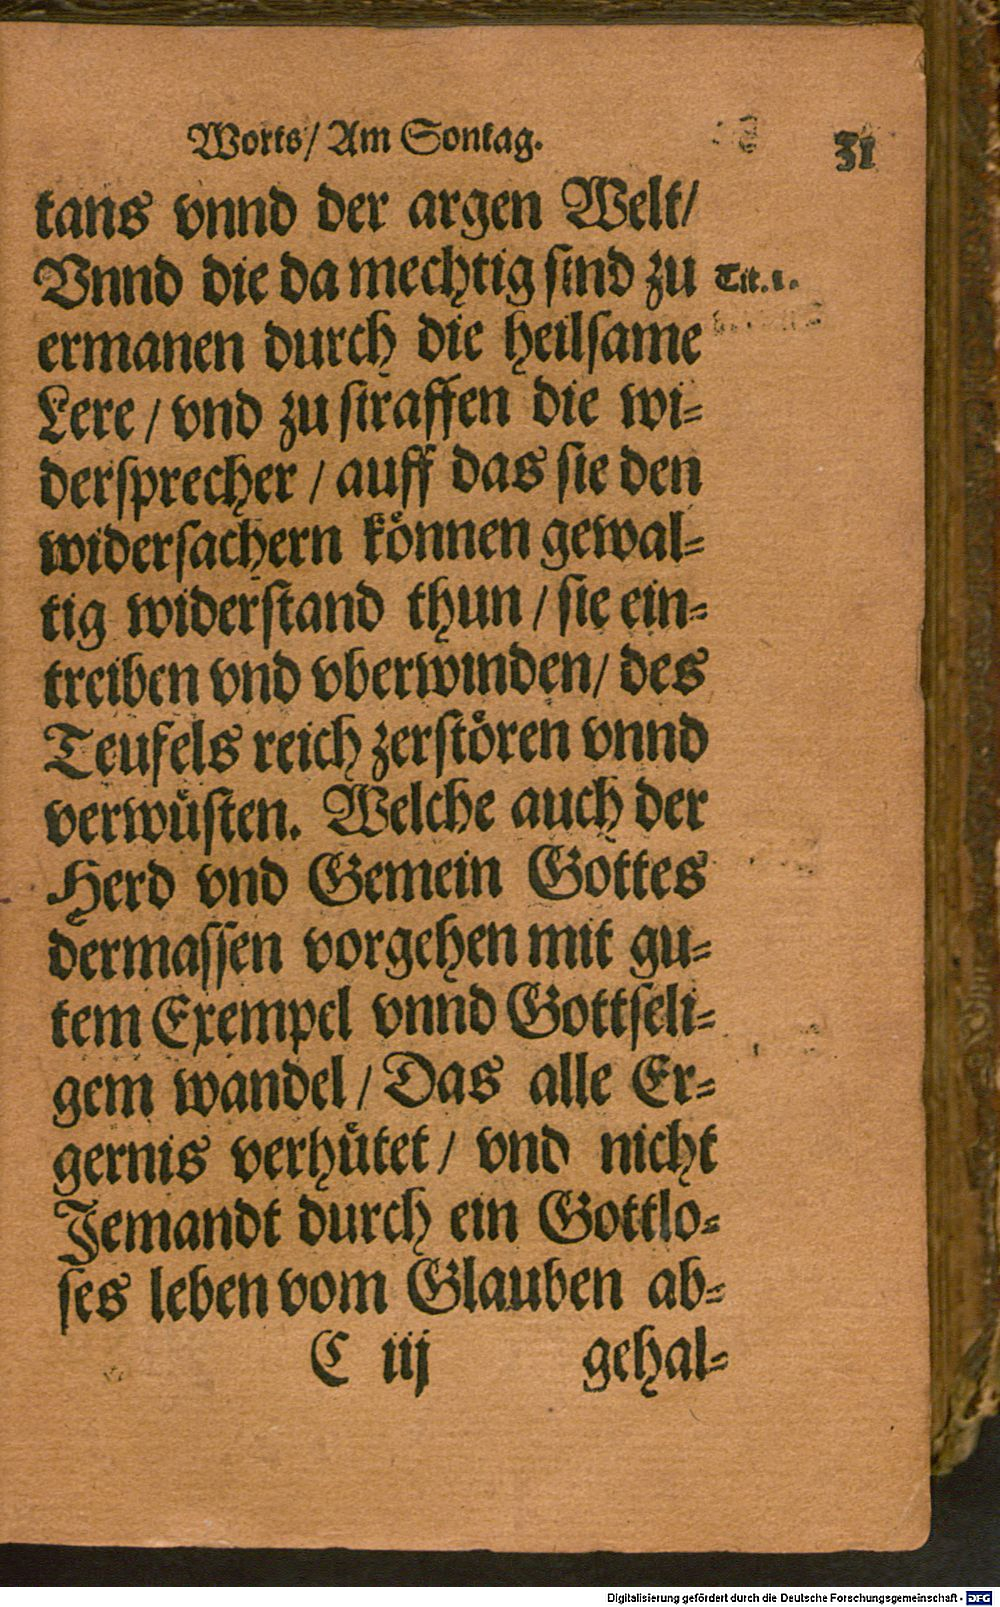 Worts/ Am Sontag. 31
tans vnnd der argen Welt/
Vnnd die da mechtig sind zu Tit. 1.
ermanen durch die heilsame
Lere / vnd zu straffen die wi=
dersprecher / auff das sie den
widersachern koͤnnen gewal=
tig widerstand thun / sie ein=
treiben vnd vberwinden/ des
Teufels reich zerstoͤren vnnd
verwuͤsten. Welche auch der
Herd vnd Gemein Gottes
dermassen vorgehen mit gu=
tem Exempel vnnd Gottseli=
gem wandel / Das alle Er=
gernis verhuͤtet / vnd nicht
Jemandt durch ein Gottlo=
ses leben vom Glauben ab=
C iij gehal=
Digitalisierung gefördert durch die Deutsche Forschungsgemeinschaft - DFG